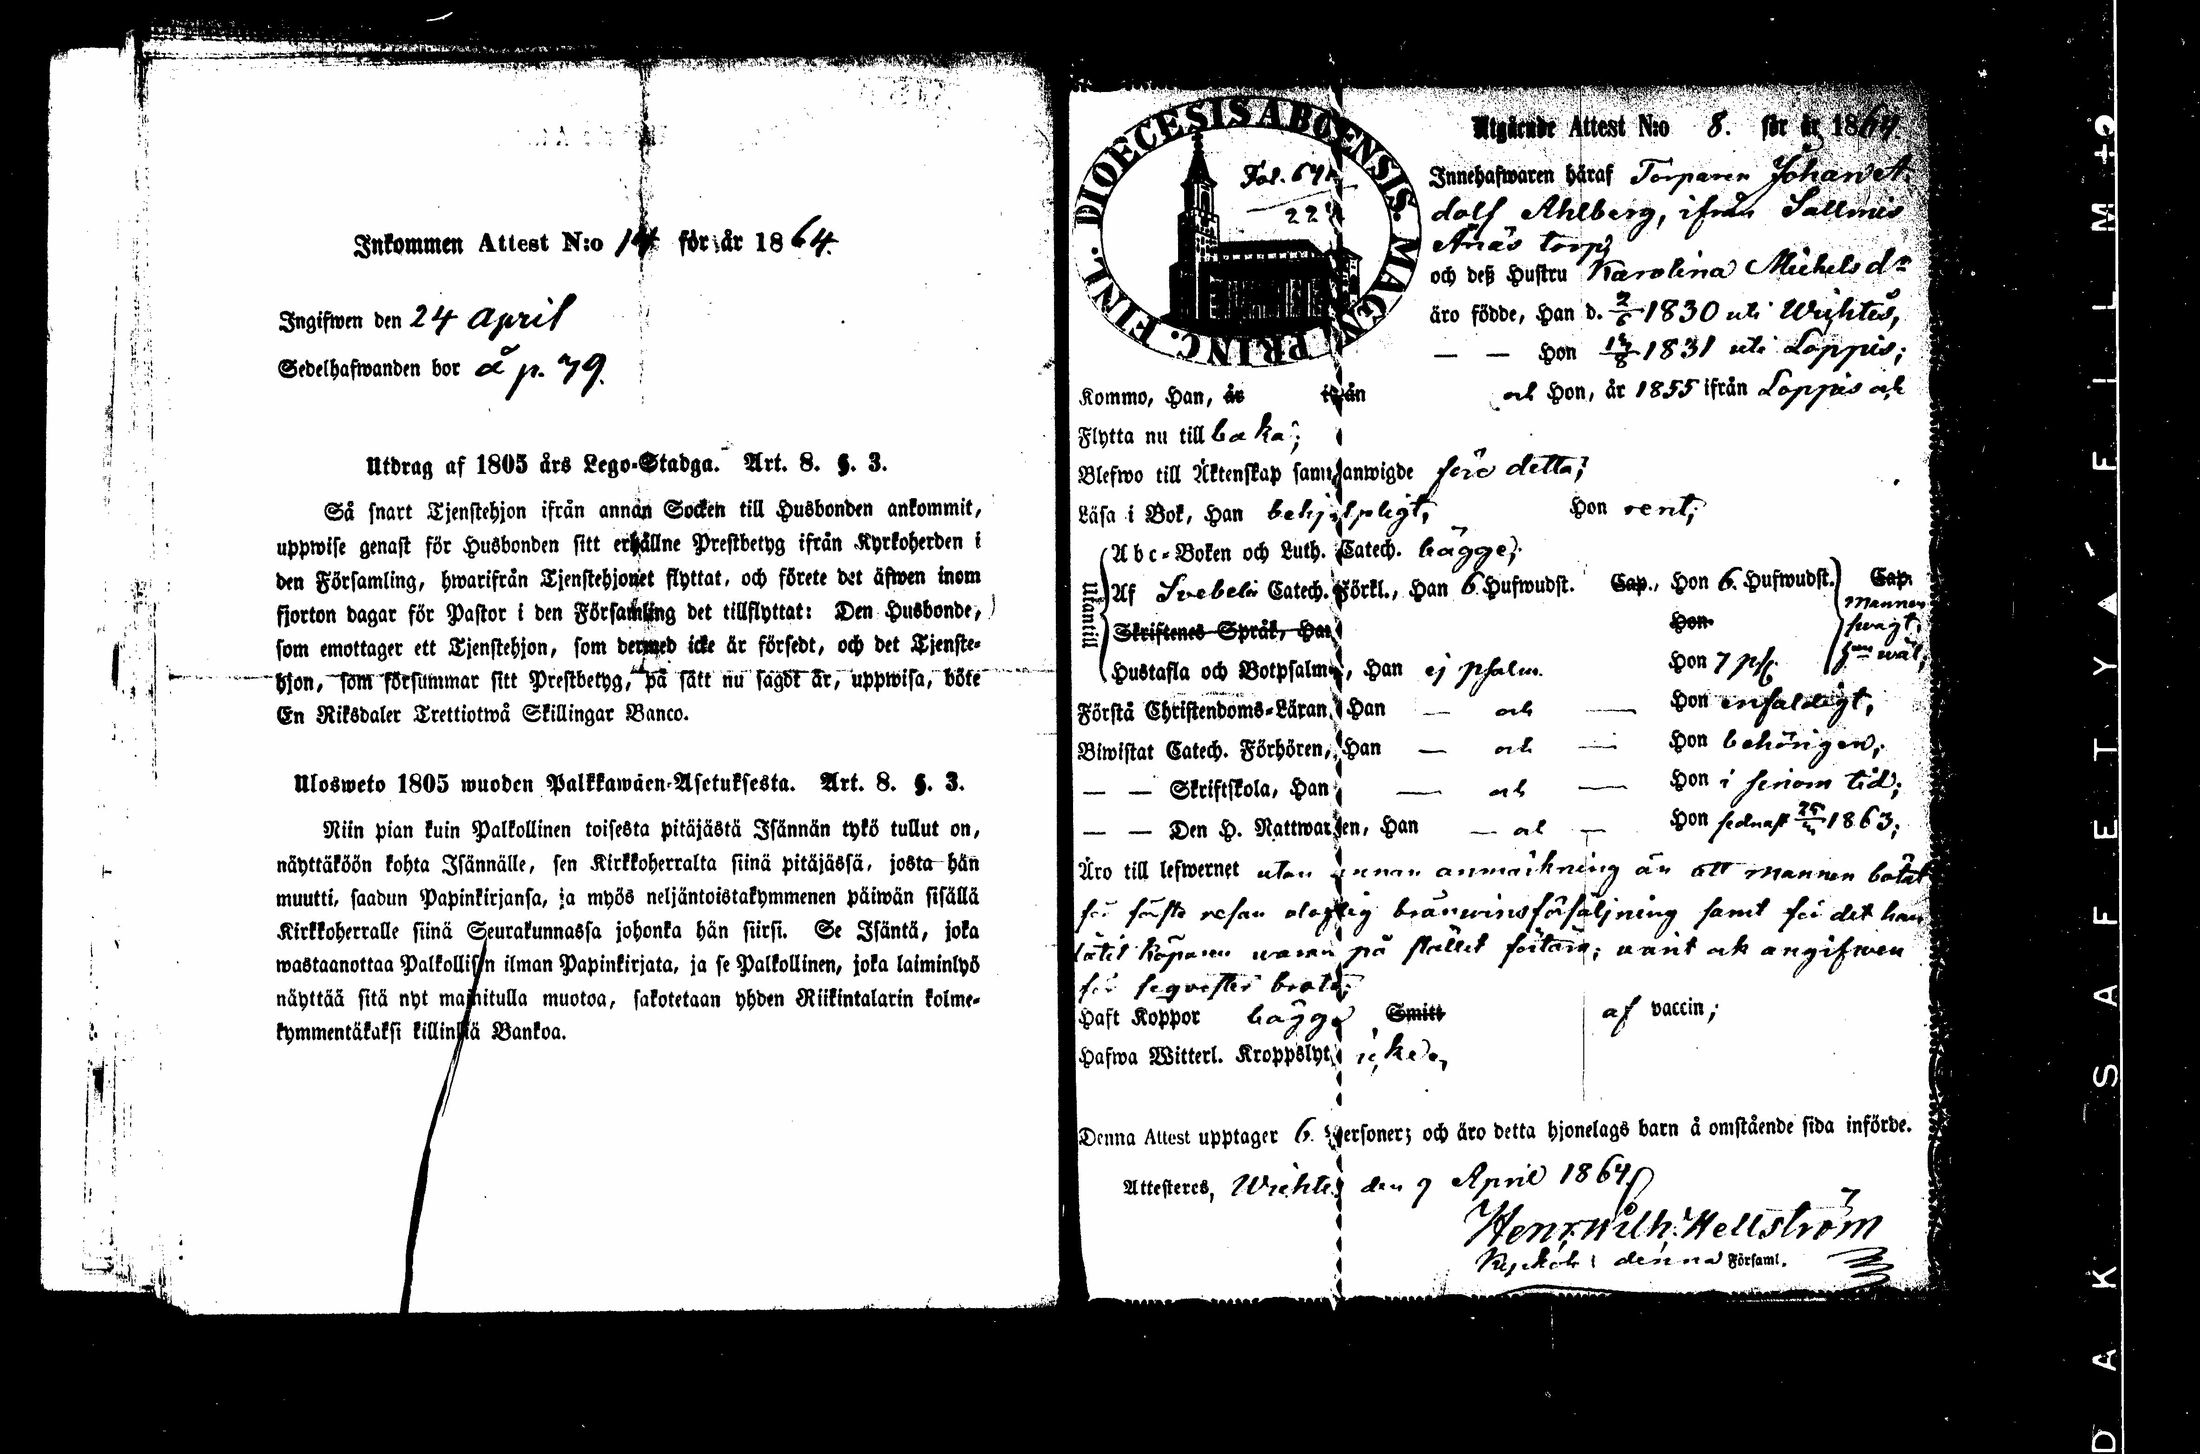 Inkommen Attest N:o 14 för år 1864.
Ingifwen den 24 april
Sedelhafwanden bor å p. 79.
Utdrag af 1805 års Lego-Stadga. Art. 8. §. 3.
Så snart Tjenstehjon ifrån annan Socken till Husbonden ankommit,
uppwise genast för Husbonden sitt erhållne Prestbetyg ifrån Kyrkoherden i
den Församling, hwarifrån Tjenstehjonet flyttat, och förete det äfwen inom
fjorton dagar för Pastor i den Församling det tillflyttat: Den Husbonde,
som emottager ett Tjenstehjon, som dermed icke är försedt, och det Tjenste-
hjon, som försummar sitt Prestbetyg, på sätt nu sagdt är, uppwisa, böte
En Riksdaler Trettiotwå Skillingar Banco.
Ulosweto 1805 wuoden Palkkawäen-Asetuksesta. Art. 8. §. 3.
Niin pian kuin Palkollinen toisesta pitäjästä Isännän tykö tullut on,
näyttäköön kohta Isännälle, sen Kirkkoherralta siinä pitäjässä, josta hän
muutti, saadun Papinkirjansa, ja myös neljäntoistakymmenen päiwän sisällä
Kirkkoherralle siinä Seurakunnassa johonka hän siirsi. Se Isäntä, joka
wastaanottaa Palkollisen ilman Papinkirjata, ja se Palkollinen, joka laiminlyö
näyttää sitä nyt mainitulla muotoa, sakotetaan yhden Riikintalarin kolme-
kymmentäkaksi killinkiä Bankoa.
DIOECESIS ABOENSIS. MAGN. PRINC. FINL.
Fol. 641
221
Utgående Attest N:o 8. för år 1864.
Innehafwaren häraf Torparen Johan A-
dolf Ahlberg, ifrån Sallmis
Ånäs torp;
och deß Hustru Karolina Michelsdr
äro födde, Han d. 2/6 1830 uti Wichtis,
— — Hon 1831 uti Loppis;
Kommo, Han, år ifrån och Hon, år 1855 ifrån Loppis och
Flytta nu till baka;
Blefwo till Äktenskap sammanwigde före detta;
Läsa i Bok, Han behjelpligt, Hon rent;
Utantill
Abc-Boken och Luth. Catech. bägge;
Af Svebelii Catech. Förkl., Han 6 Hufwudst. Cap., Hon 6. Hufwudst. Cap.
Skriftenes Språk, Han Hon
Mannen
swagt,
hon wäl;
Hustafla och Botpsalmer, Han ej psalm. Hon 7 ps.
Förstå Christendoms-Läran, Han — och — Hon enfaldigt,
Biwistat Catech. Förhören, Han — och — Hon behörigen;
— — Skriftskola, Han — och — Hon i sinom tid;
— — Den H. Nattwarden, Han — och — Hon sednast 1863;
Äro till lefwernet utan annan anmärkning än att mannen bötat
för första resan olaglig bränwinsförsäljning samt för det han
låtit köparen waran på stället förtära; warit och angifwen
för seqvester brott;
Haft Koppor bägge Smitt af vaccin;
Hafwa Witterl. Kroppslyte icke,
Denna Attest upptager 6. Personer; och äro detta hjonelags barn å omstående sida införde.
Attesteres, Wichtis den 9 April 1864
Henr. Wilh. Hellström
Kyrkoh. i denna Församl.
DAK SAFETY FILM